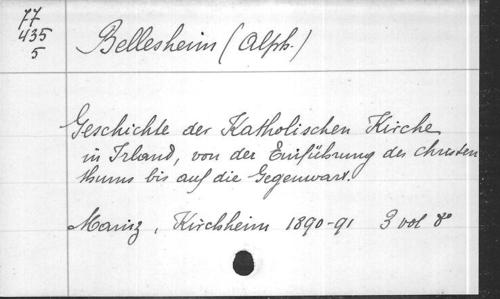 77
435
5
Bellesheim (Alph.)
Geschichte der Katholischen Kirche
in Irland, von der Einführung des Christen
thums bis auf die Gegenwart.
Mainz, Kirchheim 1890-91 3 vol 8°